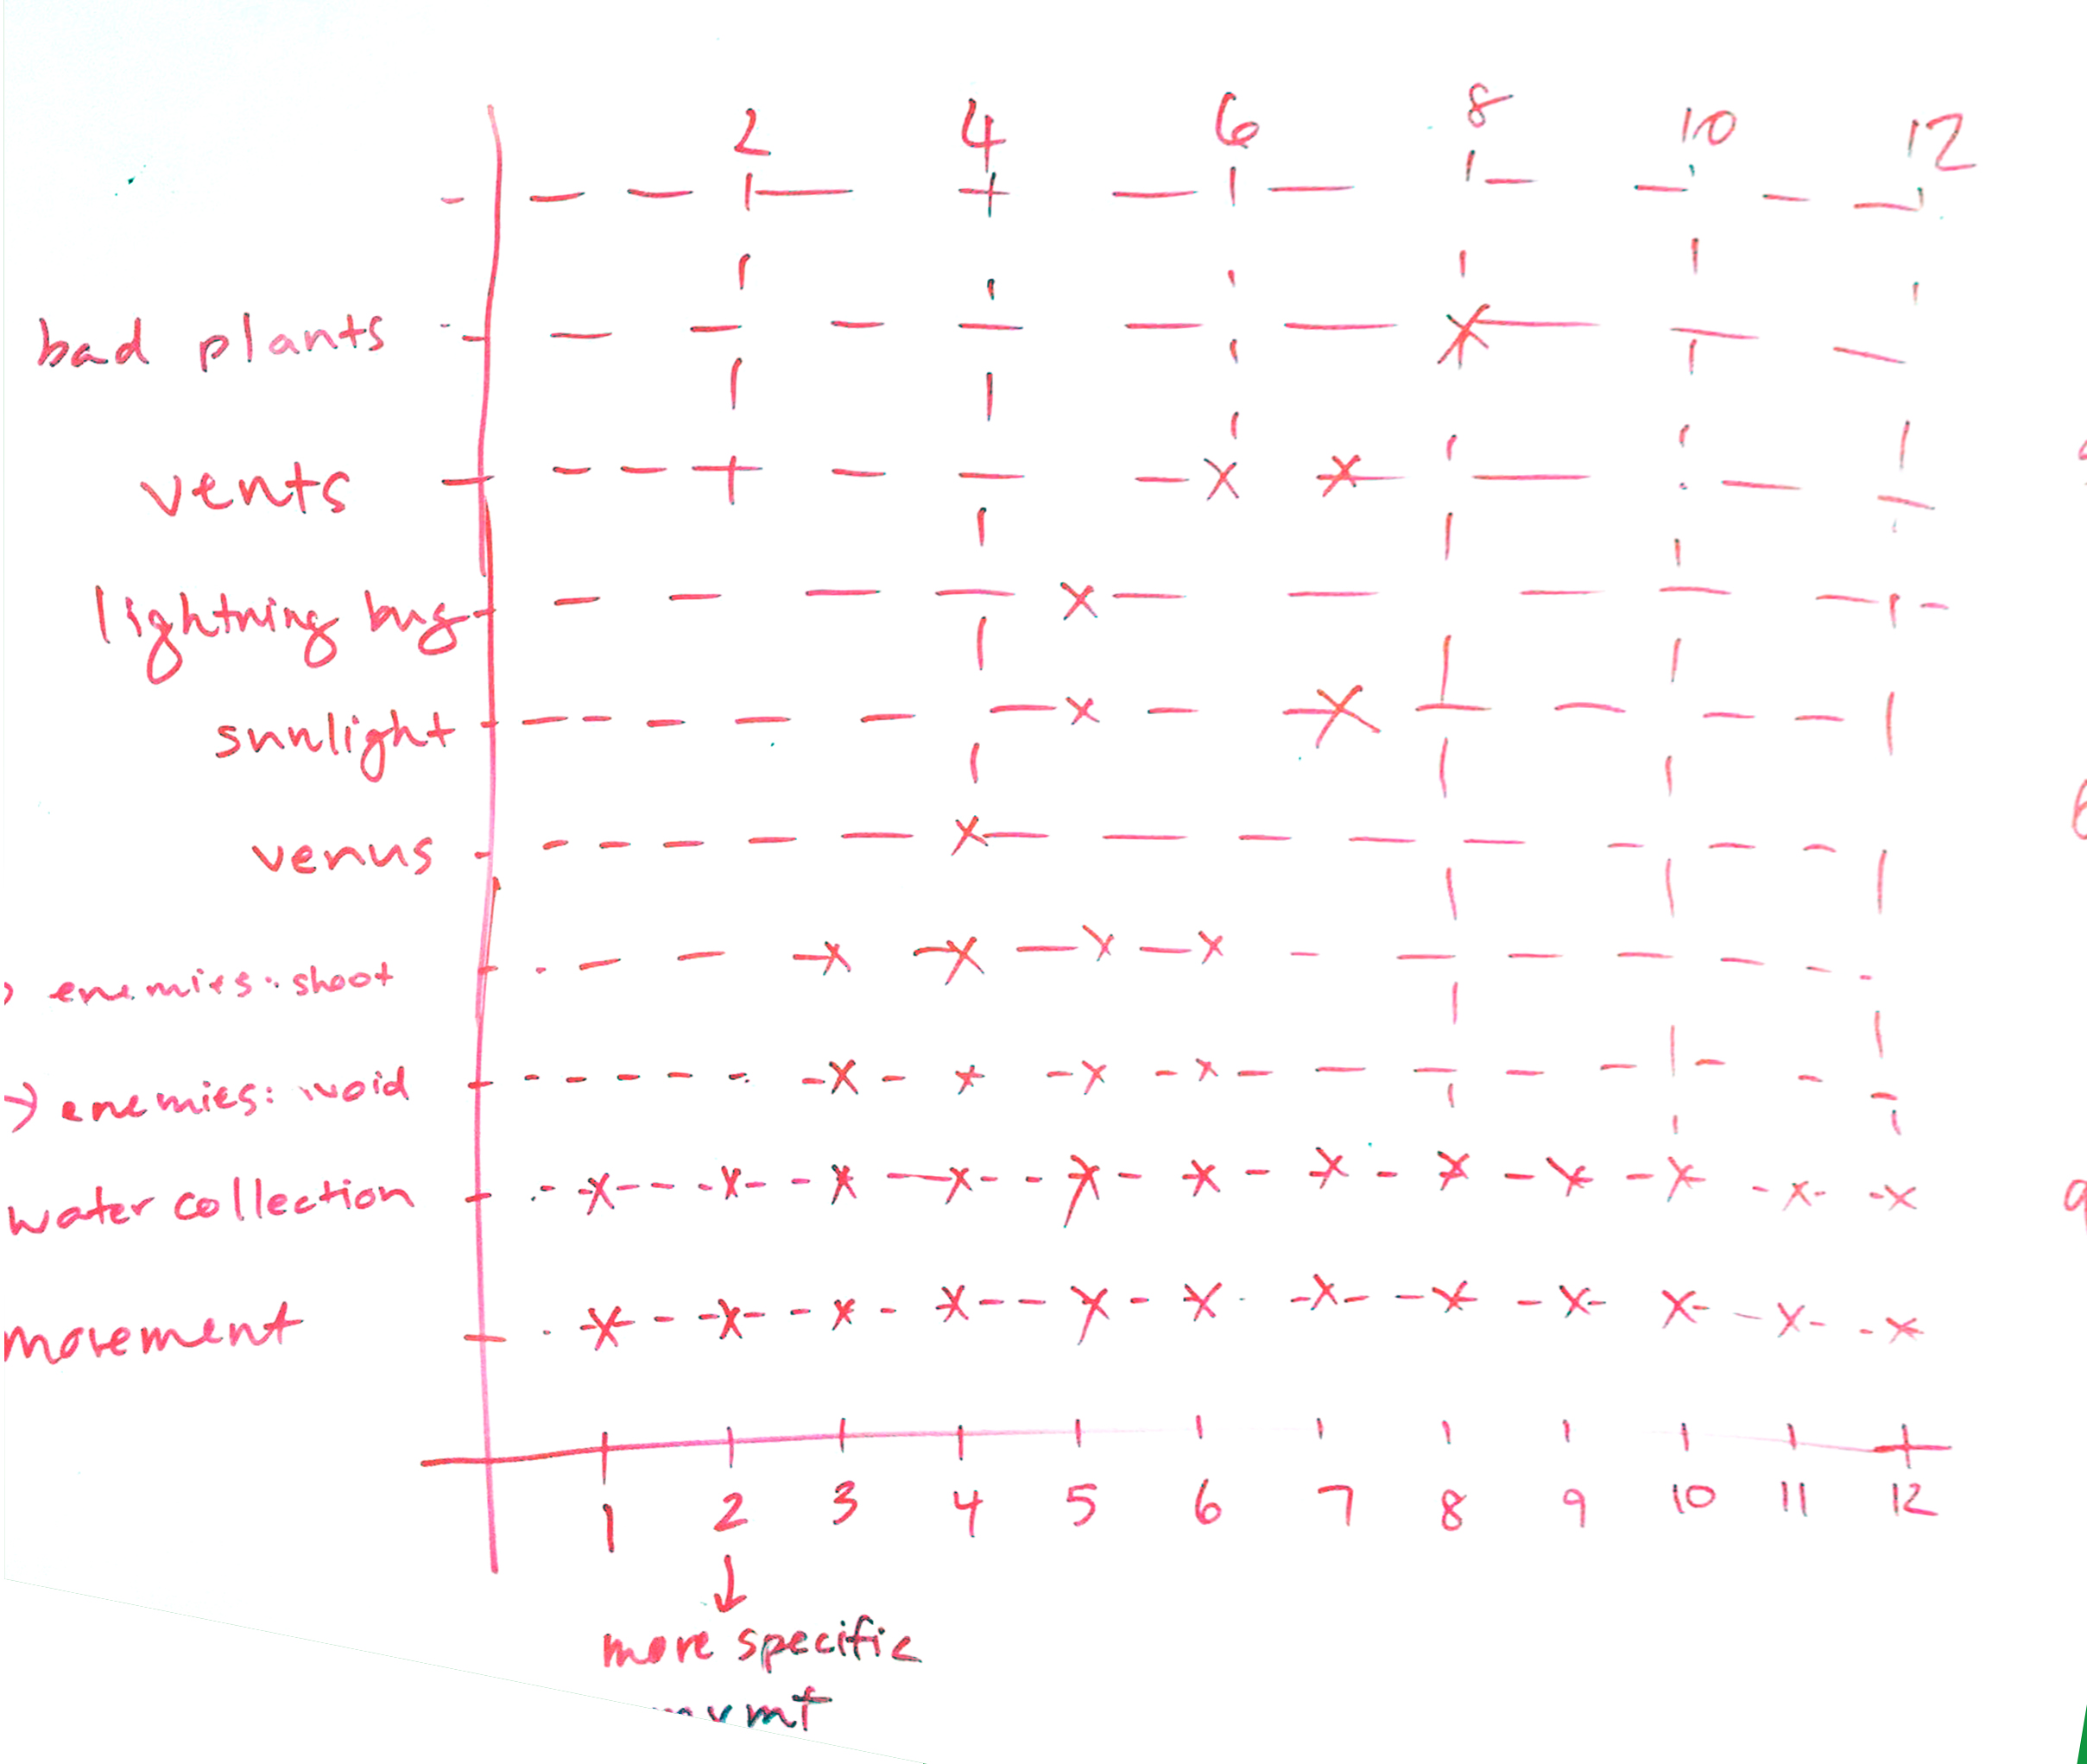 2 4 6 8 10 12
bad plants
vents
lightning bug
sunlight
venus
enemies: shoot
→ enemies: void
water collection
movement
1 2 3 4 5 6 7 8 9 10 11 12
↓
more specific
mvmt